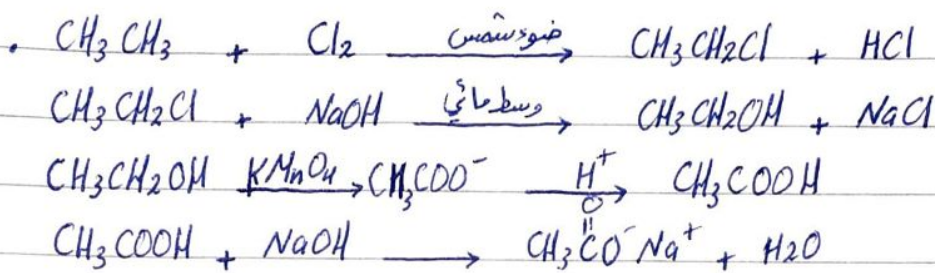 . CH₃CH₃ + Cl₂ ضوء شمس → CH₃CH₂Cl + HCl
CH₃CH₂Cl + NaOH وسط مائي → CH₃CH₂OH + NaCl
CH₃CH₂OH KMnO₄ → CH₃COO⁻ H⁺ → CH₃COOH
CH₃COOH + NaOH → CH₃C(=O)O⁻Na⁺ + H₂O